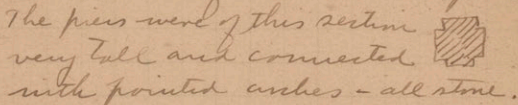 The piers were of this section
very tall and connected
with pointed arches - all stone.